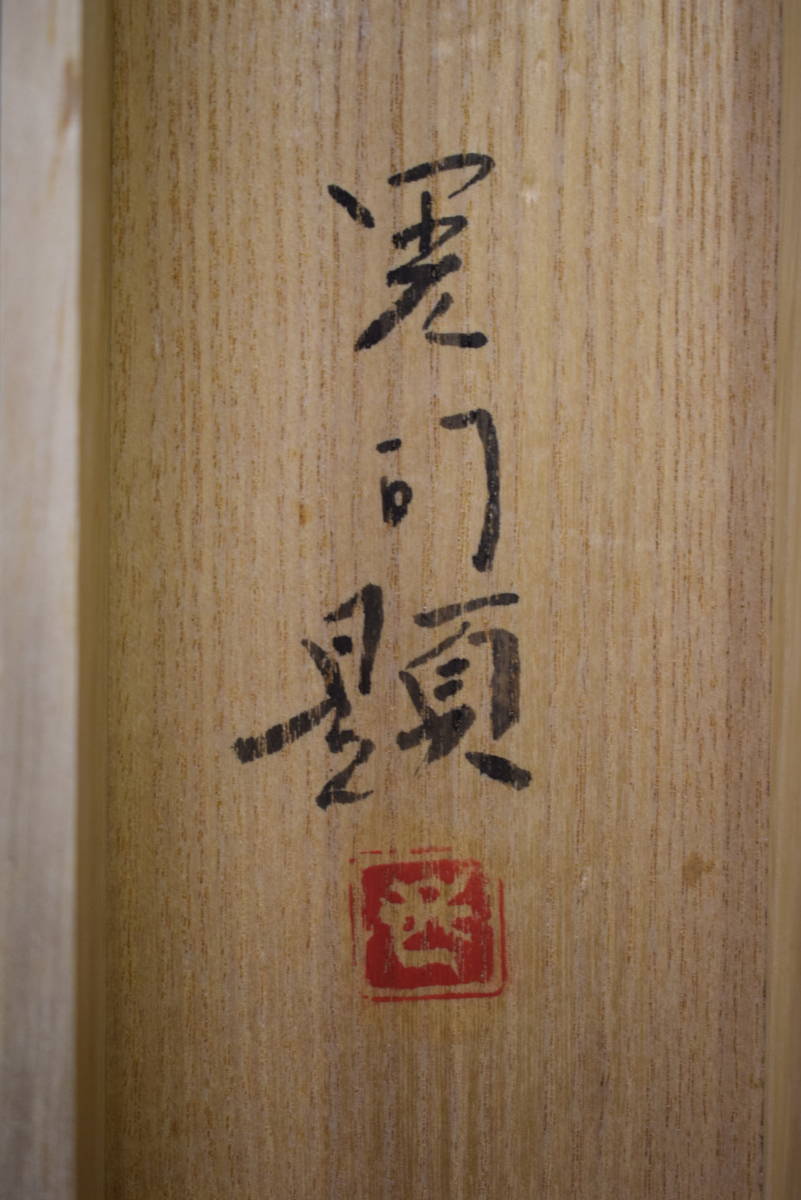 寛司題